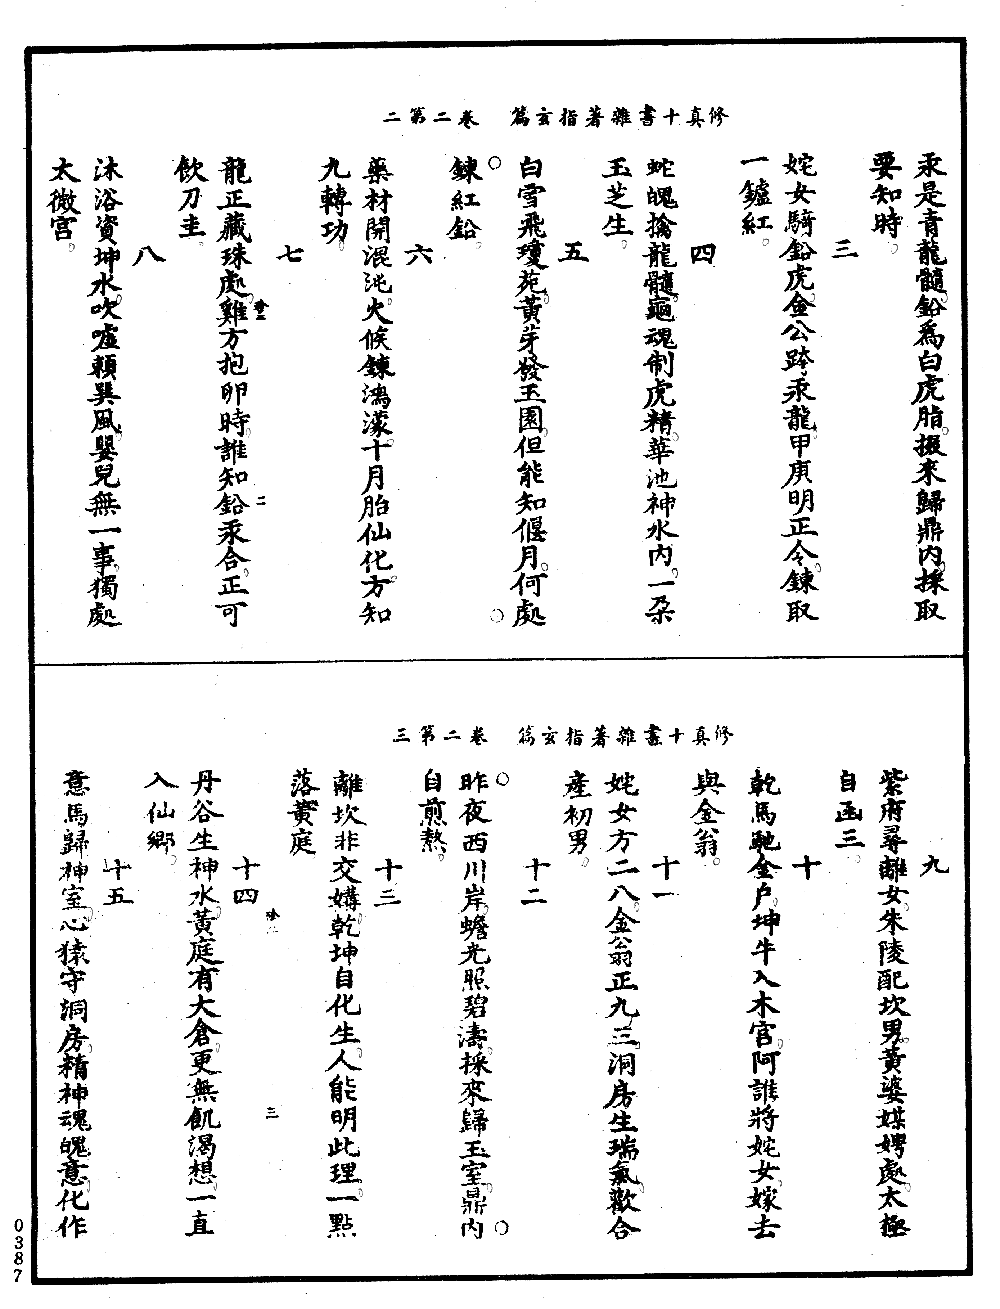 修真十書雜著指玄篇　卷二第二
汞是青龍髓。鉛爲白虎脂。掇來歸鼎內。採取
要知時。
三
姹女騎鉛虎。金公跨汞龍。甲庚明正令。鍊取
一鑪紅。
四
蛇魄擒龍髓。龜魂制虎精。華池神水內。一朶
玉芝生。
五
白雪飛瓊苑。黃芽發玉園。但能知偃月。何處
鍊紅鉛。
六
藥材開混沌。火候鍊鴻濛。十月胎仙化。方知
九轉功。
七
龍正藏珠處。雞方抱卵時。誰知鉛汞合。正可
飲刀圭。
二
八
沐浴資坤水。吹噓賴巽風。嬰兒無一事。獨處
太微宮。
修真十書雜著指玄篇　卷二第三
九
紫府尋離女。朱陵配坎男。黃婆媒娉處。太極
自函三。
十
乾馬馳金戶。坤牛入木宮。阿誰將姹女。嫁去
與金翁。
十一
姹女方二八。金翁正九三。洞房生瑞氣。歡合
產初男。
十二
昨夜西川岸。蟾光照碧濤。採來歸玉室。鼎內
自煎熬。
十三
離坎非交媾。乾坤自化生。人能明此理。一點
落黃庭
十四
丹谷生神水。黃庭有大倉。更無飢渴想。一直
入仙鄉。
三
十五
意馬歸神室。心猿守洞房。精神魂魄意。化作
0387